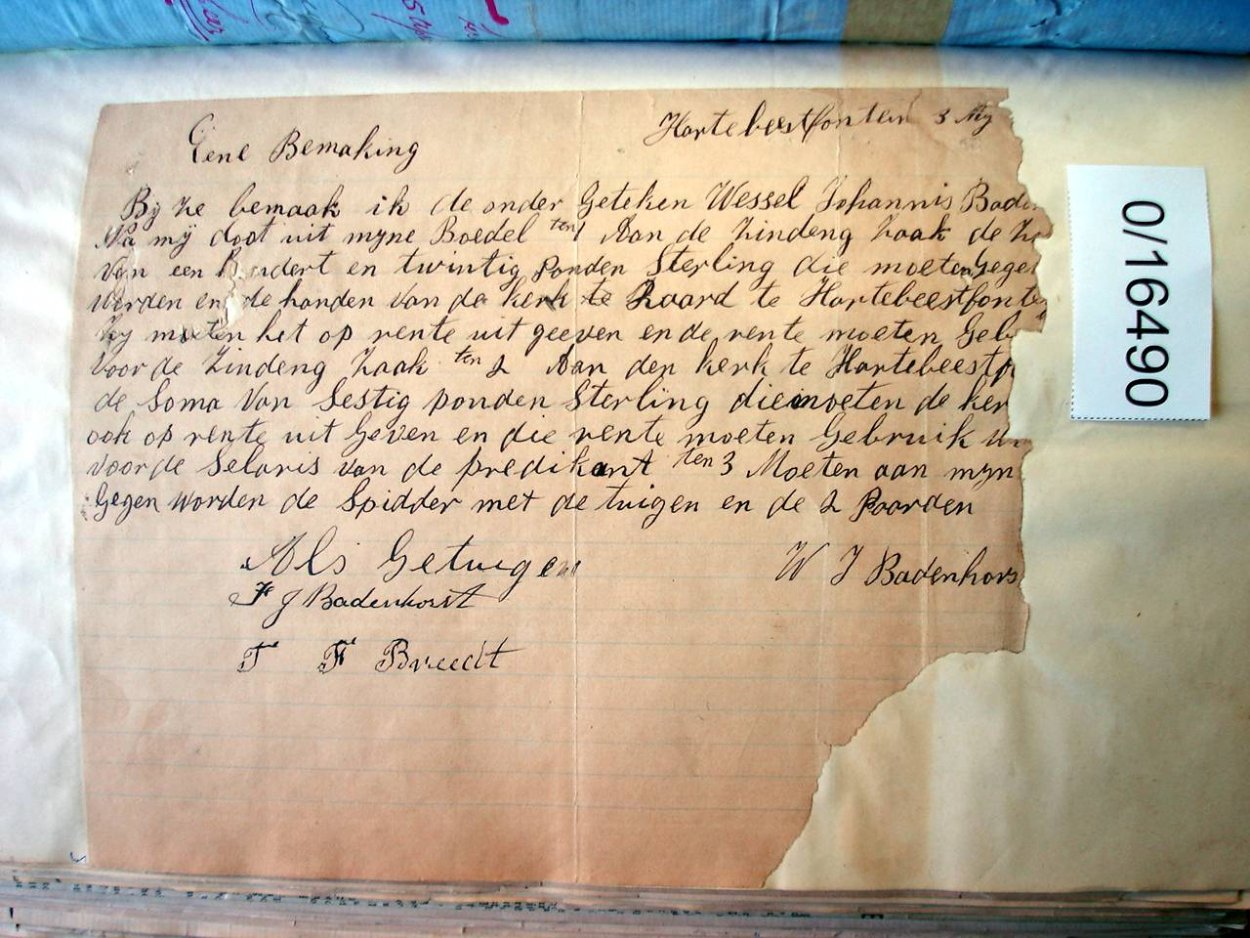 Eene Bemaking
Hartebeestfontein 3 My
By ze bemaak ik de onder Geteken Wessel Johannis Bade
Na mÿ doot uit myne Boedel ten 1 Aan de Zindeng Zaak de
Van een hondert en twintig ponden Sterling die moeten Gege
werden en de handen van de kerk te Raard te Hartebeestfonte
Zy moeten het op rente uit geeven en de rente moeten Geb
Voor de Zindeng Zaak ten 2 Aan den kerk te Hartebeestf
de Soma Van Sestig ponden Sterling die moeten de ker
ook op rente uit Geven en die rente moeten Gebruik
Voor de Selaris van de predikant ten 3 Moeten aan myn
Gegen worden de Spidder met de tuigen en de 2 Paarden
Als Getuigen
W J Badenhors
F J Badenhorst
T F Breedt
0/16490